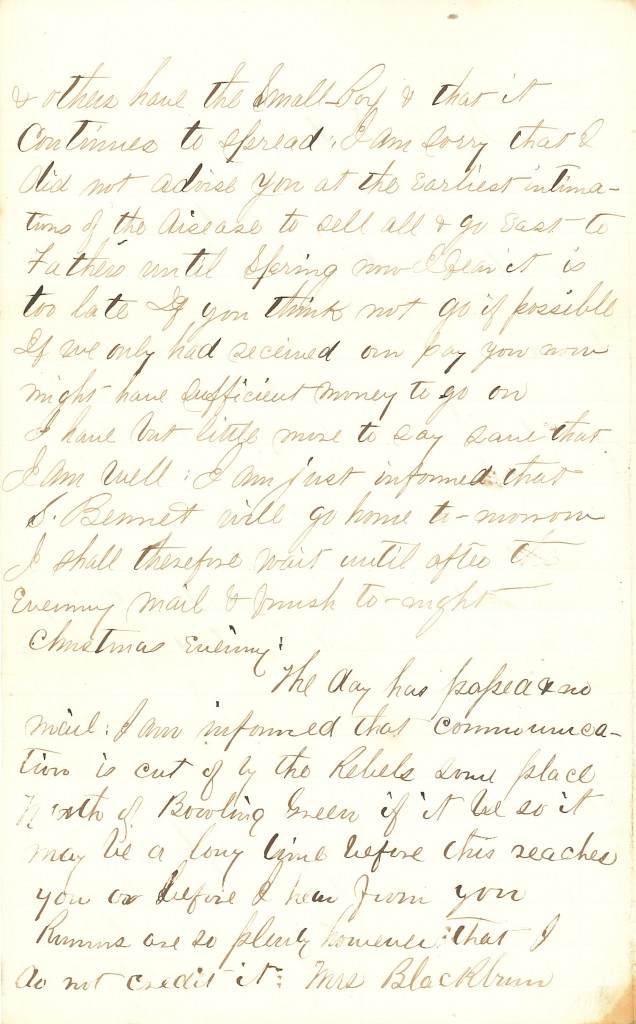 & others have the Small-Pox & that it
continues to spread: I am sorry that I
did not advise you at the earliest intima-
tions of the disease to sell all & go East to
Father's until Spring now I fear it is
too late If you think not go if possible
If we only had received our pay you now
might have sufficient money to go on
I have but little more to say save that
I am well: I am just informed that
S. Bennet will go home to-morrow
I shall therefore wait until after the
Evening mail & finish to-night
Christmas Evening:
The day has passed & no
mail: I am informed that communica-
tion is cut of by the Rebels some place
North of Bowling Green if it be so it
may be a long time before this reaches
you or before I hear from you
Rumors are so plenty however that I
do not credit it: Mrs Blackburn